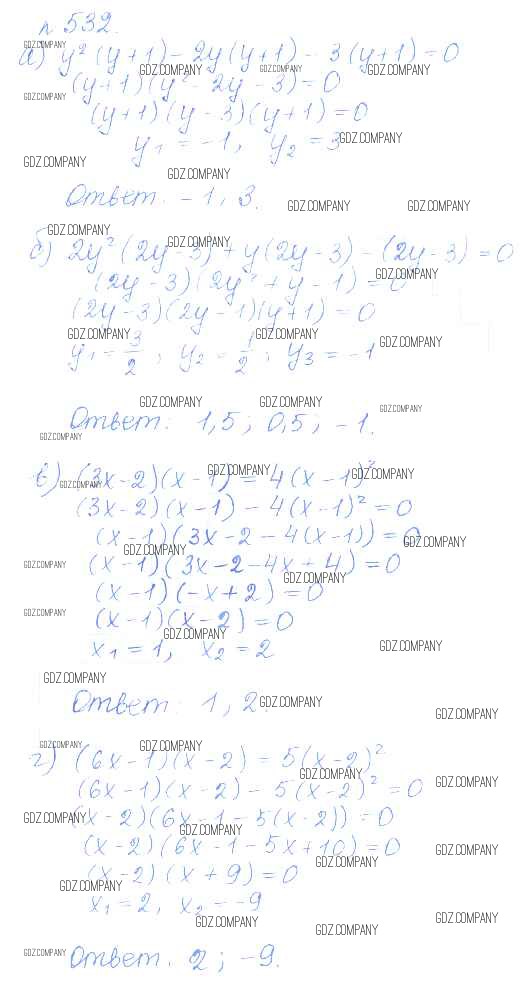 N 532.
а) y² (y+1) - 2y (y+1) - 3 (y+1) = 0
(y+1) (y² - 2y - 3) = 0
(y+1) (y-3) (y+1) = 0
y₁ = -1, y₂ = 3
Ответ. -1, 3.
б) 2y² (2y-3) + y (2y-3) - (2y-3) = 0
(2y-3) (2y² + y - 1) = 0
(2y-3) (2y-1) (y+1) = 0
y₁ = 3/2 ; y₂ = 1/2 ; y₃ = -1
Ответ: 1,5 ; 0,5 ; -1.
в) (3x-2) (x-1) = 4 (x-1)²
(3x-2) (x-1) - 4 (x-1)² = 0
(x-1) (3x-2 - 4(x-1)) = 0
(x-1) (3x-2-4x+4) = 0
(x-1) (-x+2) = 0
(x-1) (x-2) = 0
x₁ = 1, x₂ = 2
Ответ: 1, 2.
г) (6x-1) (x-2) = 5 (x-2)²
(6x-1) (x-2) - 5 (x-2)² = 0
(x-2) (6x-1 - 5(x-2)) = 0
(x-2) (6x-1-5x+10) = 0
(x-2) (x+9) = 0
x₁ = 2, x₂ = -9
Ответ. 2 ; -9.
GDZ.COMPANY